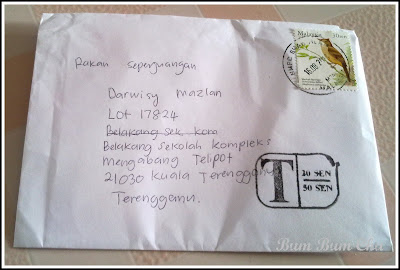 Rakan seperjuangan
Malaysia
Darwisy Mazlan
Lot 17824
Belakang sek. kom
Belakang Sekolah Kompleks
Mengabang Telipot
21030 Kuala Terengganu
Terengganu.
T 20 SEN
50 SEN
Bum Bum Cha